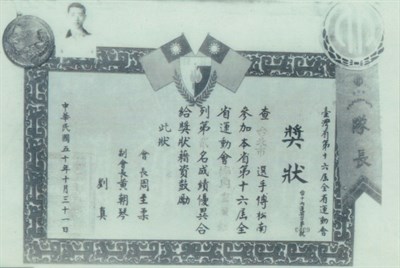 臺灣省第十六屆全省運動會
獎狀
查 選手傅松南
參加本省第十六屆全
省運動會
列第 名成績優異合
給獎狀藉資鼓勵
此狀
會長周至柔
副會長黃朝琴
劉真
中華民國五十年十月三十一日
隊長